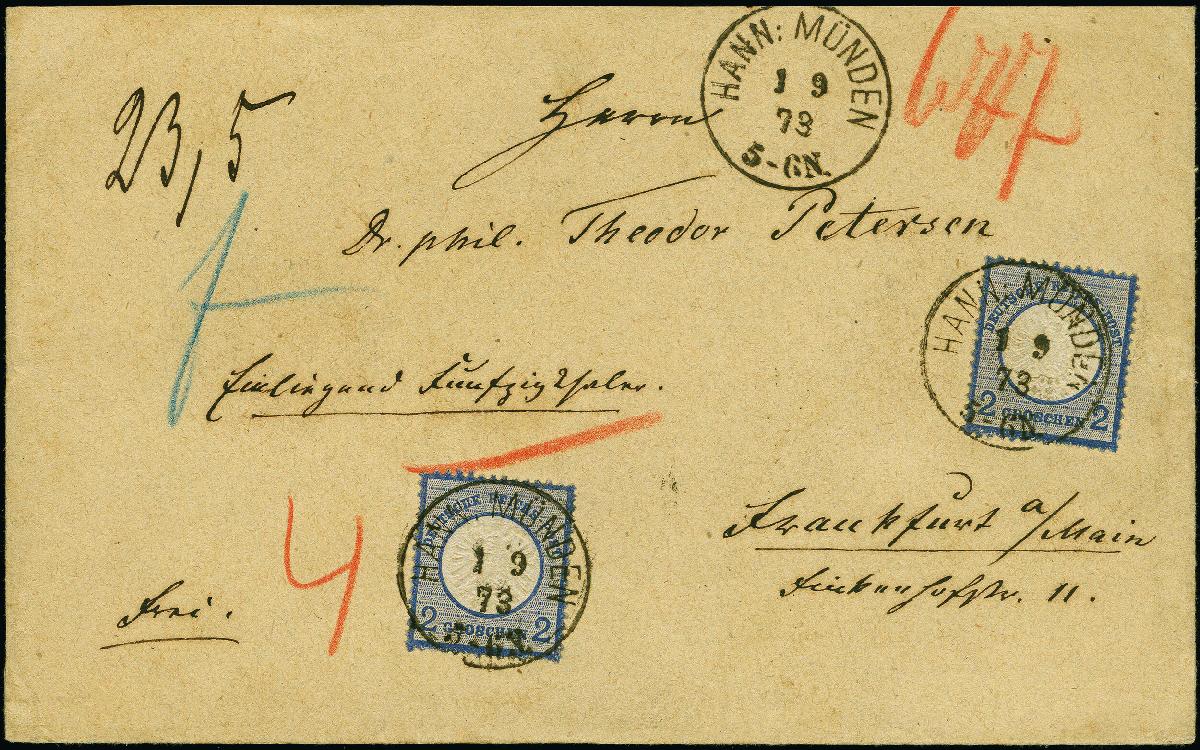 HANN: MÜNDEN
1 9
73
5-6N.
677
23,5
Herrn
Dr. phil. Theodor Petersen
HANN: MÜNDEN
1 9
73
5-6N.
DEUTSCHE REICHS-POST
2 GROSCHEN 2
Einliegend Fünfzig Thaler.
4
HANN: MÜNDEN
1 9
73
5-6N.
2 GROSCHEN 2
Frankfurt a/Main
Finkenhofstr. 11.
Frei.